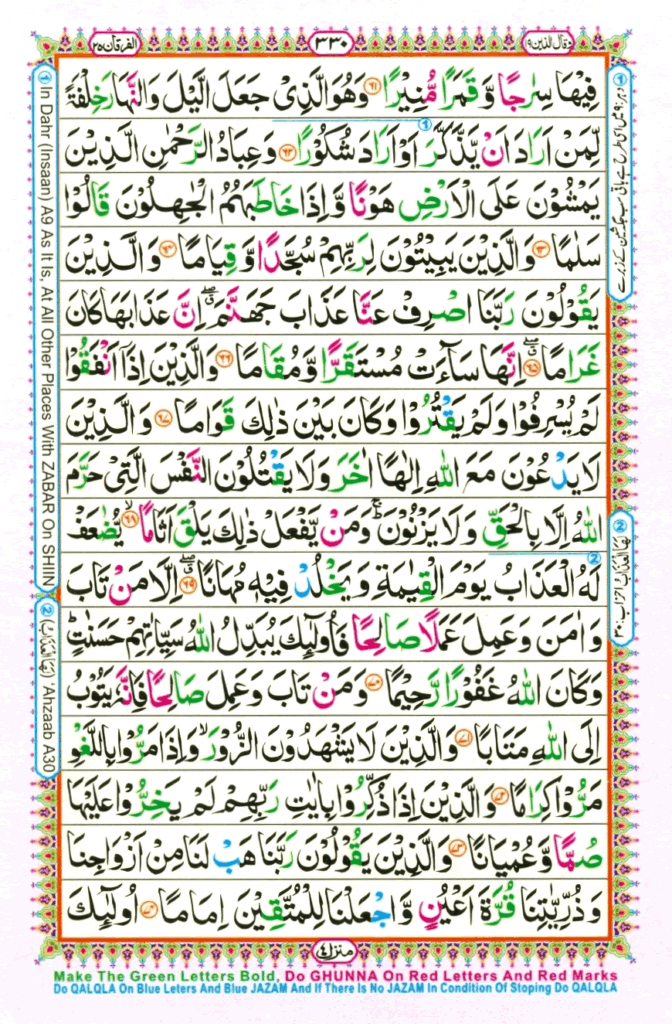 الفرقان ٢٥
٣٣٠
وقال الذين ١٩
فِيْهَا سِرٰجًا وَّقَمَرًا مُّنِيْرًا ﴿٦١﴾ وَهُوَ الَّذِىْ جَعَلَ الَّيْلَ وَالنَّهَارَ خِلْفَةً
لِّمَنْ اَرَادَ اَنْ يَّذَّكَّرَ اَوْ اَرَادَ شُكُوْرًا ﴿٦٢﴾ وَعِبَادُ الرَّحْمٰنِ الَّذِيْنَ
يَمْشُوْنَ عَلَى الْاَرْضِ هَوْنًا وَّاِذَا خَاطَبَهُمُ الْجٰهِلُوْنَ قَالُوْا
سَلٰمًا ﴿٦٣﴾ وَالَّذِيْنَ يَبِيْتُوْنَ لِرَبِّهِمْ سُجَّدًا وَّقِيَامًا ﴿٦٤﴾ وَالَّذِيْنَ
يَقُوْلُوْنَ رَبَّنَا اصْرِفْ عَنَّا عَذَابَ جَهَنَّمَ ۖ اِنَّ عَذَابَهَا كَانَ
غَرَامًا ﴿٦٥﴾ اِنَّهَا سَآءَتْ مُسْتَقَرًّا وَّمُقَامًا ﴿٦٦﴾ وَالَّذِيْنَ اِذَآ اَنْفَقُوْا
لَمْ يُسْرِفُوْا وَلَمْ يَقْتُرُوْا وَكَانَ بَيْنَ ذٰلِكَ قَوَامًا ﴿٦٧﴾ وَالَّذِيْنَ
لَا يَدْعُوْنَ مَعَ اللّٰهِ اِلٰهًا اٰخَرَ وَلَا يَقْتُلُوْنَ النَّفْسَ الَّتِىْ حَرَّمَ
اللّٰهُ اِلَّا بِالْحَقِّ وَلَا يَزْنُوْنَ ۚ وَمَنْ يَّفْعَلْ ذٰلِكَ يَلْقَ اَثَامًا ﴿٦٨﴾ يُّضٰعَفْ
لَهُ الْعَذَابُ يَوْمَ الْقِيٰمَةِ وَيَخْلُدْ فِيْهٖ مُهَانًا ﴿٦٩﴾ اِلَّا مَنْ تَابَ
وَاٰمَنَ وَعَمِلَ عَمَلًا صَالِحًا فَاُولٰٓئِكَ يُبَدِّلُ اللّٰهُ سَيِّاٰتِهِمْ حَسَنٰتٍ ؕ
وَكَانَ اللّٰهُ غَفُوْرًا رَّحِيْمًا ﴿٧٠﴾ وَمَنْ تَابَ وَعَمِلَ صَالِحًا فَاِنَّهٗ يَتُوْبُ
اِلَى اللّٰهِ مَتَابًا ﴿٧١﴾ وَالَّذِيْنَ لَا يَشْهَدُوْنَ الزُّوْرَ ۙ وَاِذَا مَرُّوْا بِاللَّغْوِ
مَرُّوْا كِرَامًا ﴿٧٢﴾ وَالَّذِيْنَ اِذَا ذُكِّرُوْا بِاٰيٰتِ رَبِّهِمْ لَمْ يَخِرُّوْا عَلَيْهَا
صُمًّا وَّعُمْيَانًا ﴿٧٣﴾ وَالَّذِيْنَ يَقُوْلُوْنَ رَبَّنَا هَبْ لَنَا مِنْ اَزْوَاجِنَا
وَذُرِّيّٰتِنَا قُرَّةَ اَعْيُنٍ وَّاجْعَلْنَا لِلْمُتَّقِيْنَ اِمَامًا ﴿٧٤﴾ اُولٰٓئِكَ
منزل ٤
① In Dahr (Insaan) A9 As It Is, At All Other Places With ZABAR On SHIIN
② (لها العذاب) 'Ahzaab A30
② لها العذاب احزاب: ٣٠
Make The Green Letters Bold, Do GHUNNA On Red Letters And Red Marks
Do QALQLA On Blue Leters And Blue JAZAM And If There Is No JAZAM In Condition Of Stoping Do QALQLA